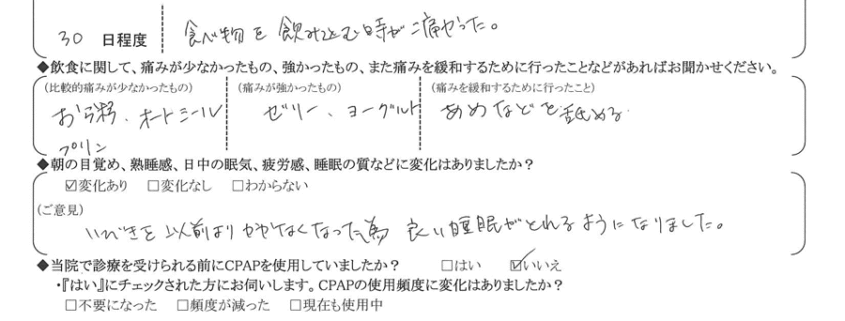 30 日程度 食べ物を飲みこむ時が痛かった。
◆飲食に関して、痛みが少なかったもの、強かったもの、また痛みを緩和するために行ったことなどがあればお聞かせください。
(比較的痛みが少なかったもの) (痛みが強かったもの) (痛みを緩和するために行ったこと)
おかゆ、オートミール ゼリー、ヨーグルト あめなどを舐める
プリン
◆朝の目覚め、熟睡感、日中の眠気、疲労感、睡眠の質などに変化はありましたか？
☑変化あり □変化なし □わからない
(ご意見)
いびきを以前よりかかなくなった為 良い睡眠がとれるようになりました。
◆当院で診療を受けられる前にCPAPを使用していましたか？ □はい ☑いいえ
・『はい』にチェックされた方にお伺いします。CPAPの使用頻度に変化はありましたか？
□不要になった □頻度が減った □現在も使用中